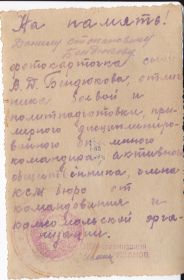 На память!
Данилу Степановичу
Бендюкову
фотокарточка сына
В. Д. Бендюкова, отлич
ника боевой и
политподготовки, при
мерного дисциплиниро
ванного
командира, активного
общественника, члена
бюро от
командования и
комсомольской орга
низации.